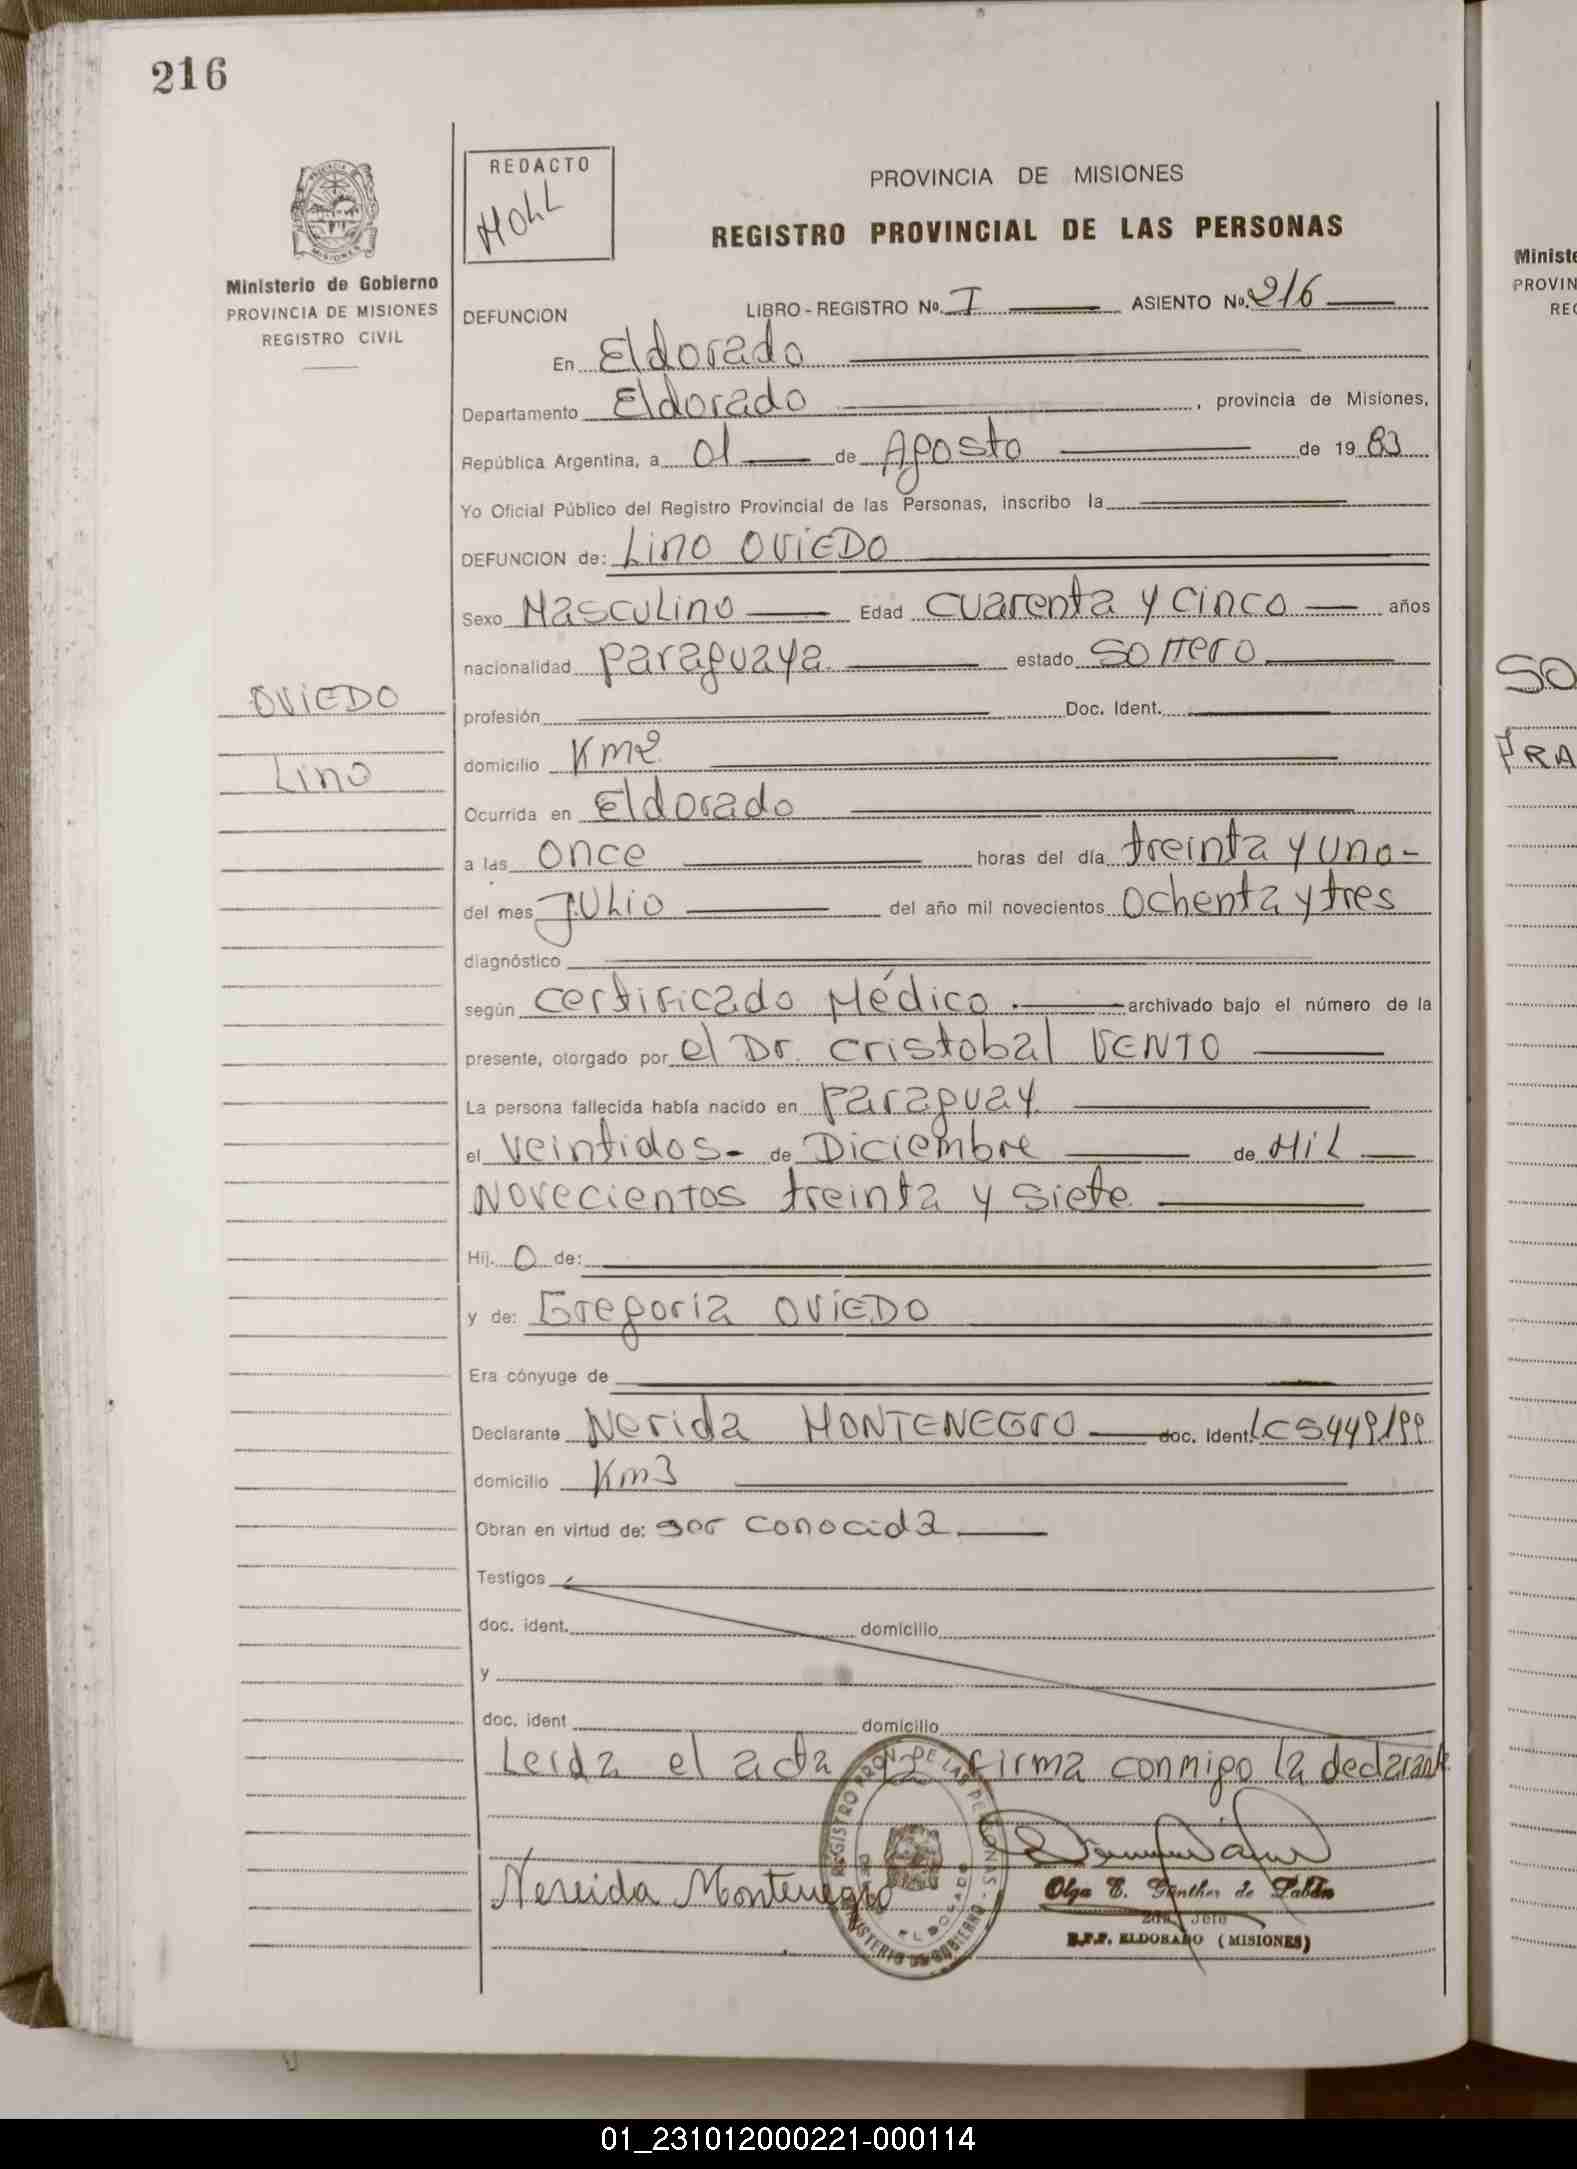 216
REDACTO
MOhL
PROVINCIA DE MISIONES
REGISTRO PROVINCIAL DE LAS PERSONAS
Ministerio de Gobierno
PROVINCIA DE MISIONES
REGISTRO CIVIL
DEFUNCION LIBRO - REGISTRO No. I ASIENTO No. 216
En Eldorado
Departamento Eldorado, provincia de Misiones,
República Argentina, a 01 de Agosto de 19 83
Yo Oficial Público del Registro Provincial de las Personas, inscribo la
DEFUNCION de: Lino OVIEDO
Sexo Masculino Edad cuarenta y cinco años
nacionalidad paraguaya estado soltero
OVIEDO
profesión Doc. Ident.
domicilio Km2
Lino
Ocurrida en Eldorado
a las once horas del día treinta y uno-
del mes Julio del año mil novecientos ochenta y tres
diagnóstico
según certificado Médico archivado bajo el número de la
presente, otorgado por el Dr. Cristobal VENTO
La persona fallecida había nacido en Paraguay
el veintidos- de Diciembre de Mil
Novecientos treinta y siete
Hij. O de:
y de: Gregoria OVIEDO
Era cónyuge de
Declarante Nerida MONTENEGRO doc. Ident.
domicilio Km3
Obran en virtud de: ser conocida
Testigos
doc. ident. domicilio
y
doc. ident domicilio
Leida el acta la firma conmigo la declarante
REGISTRO PROV. DE LAS PERSONAS - MINISTERIO DE GOBIERNO
ELDORADO
Nereida Montenegro
Olga E. Günther de
2do. Jefe
R.P.P. ELDORADO (MISIONES)
Ministe
PROVIN
REG
SO
FRA
01_231012000221-000114